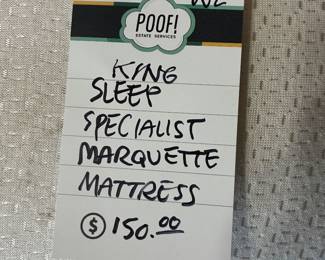 POOF!
ESTATE SERVICES
KING
SLEEP
SPECIALIST
MARQUETTE
MATTRESS
$ 150.00